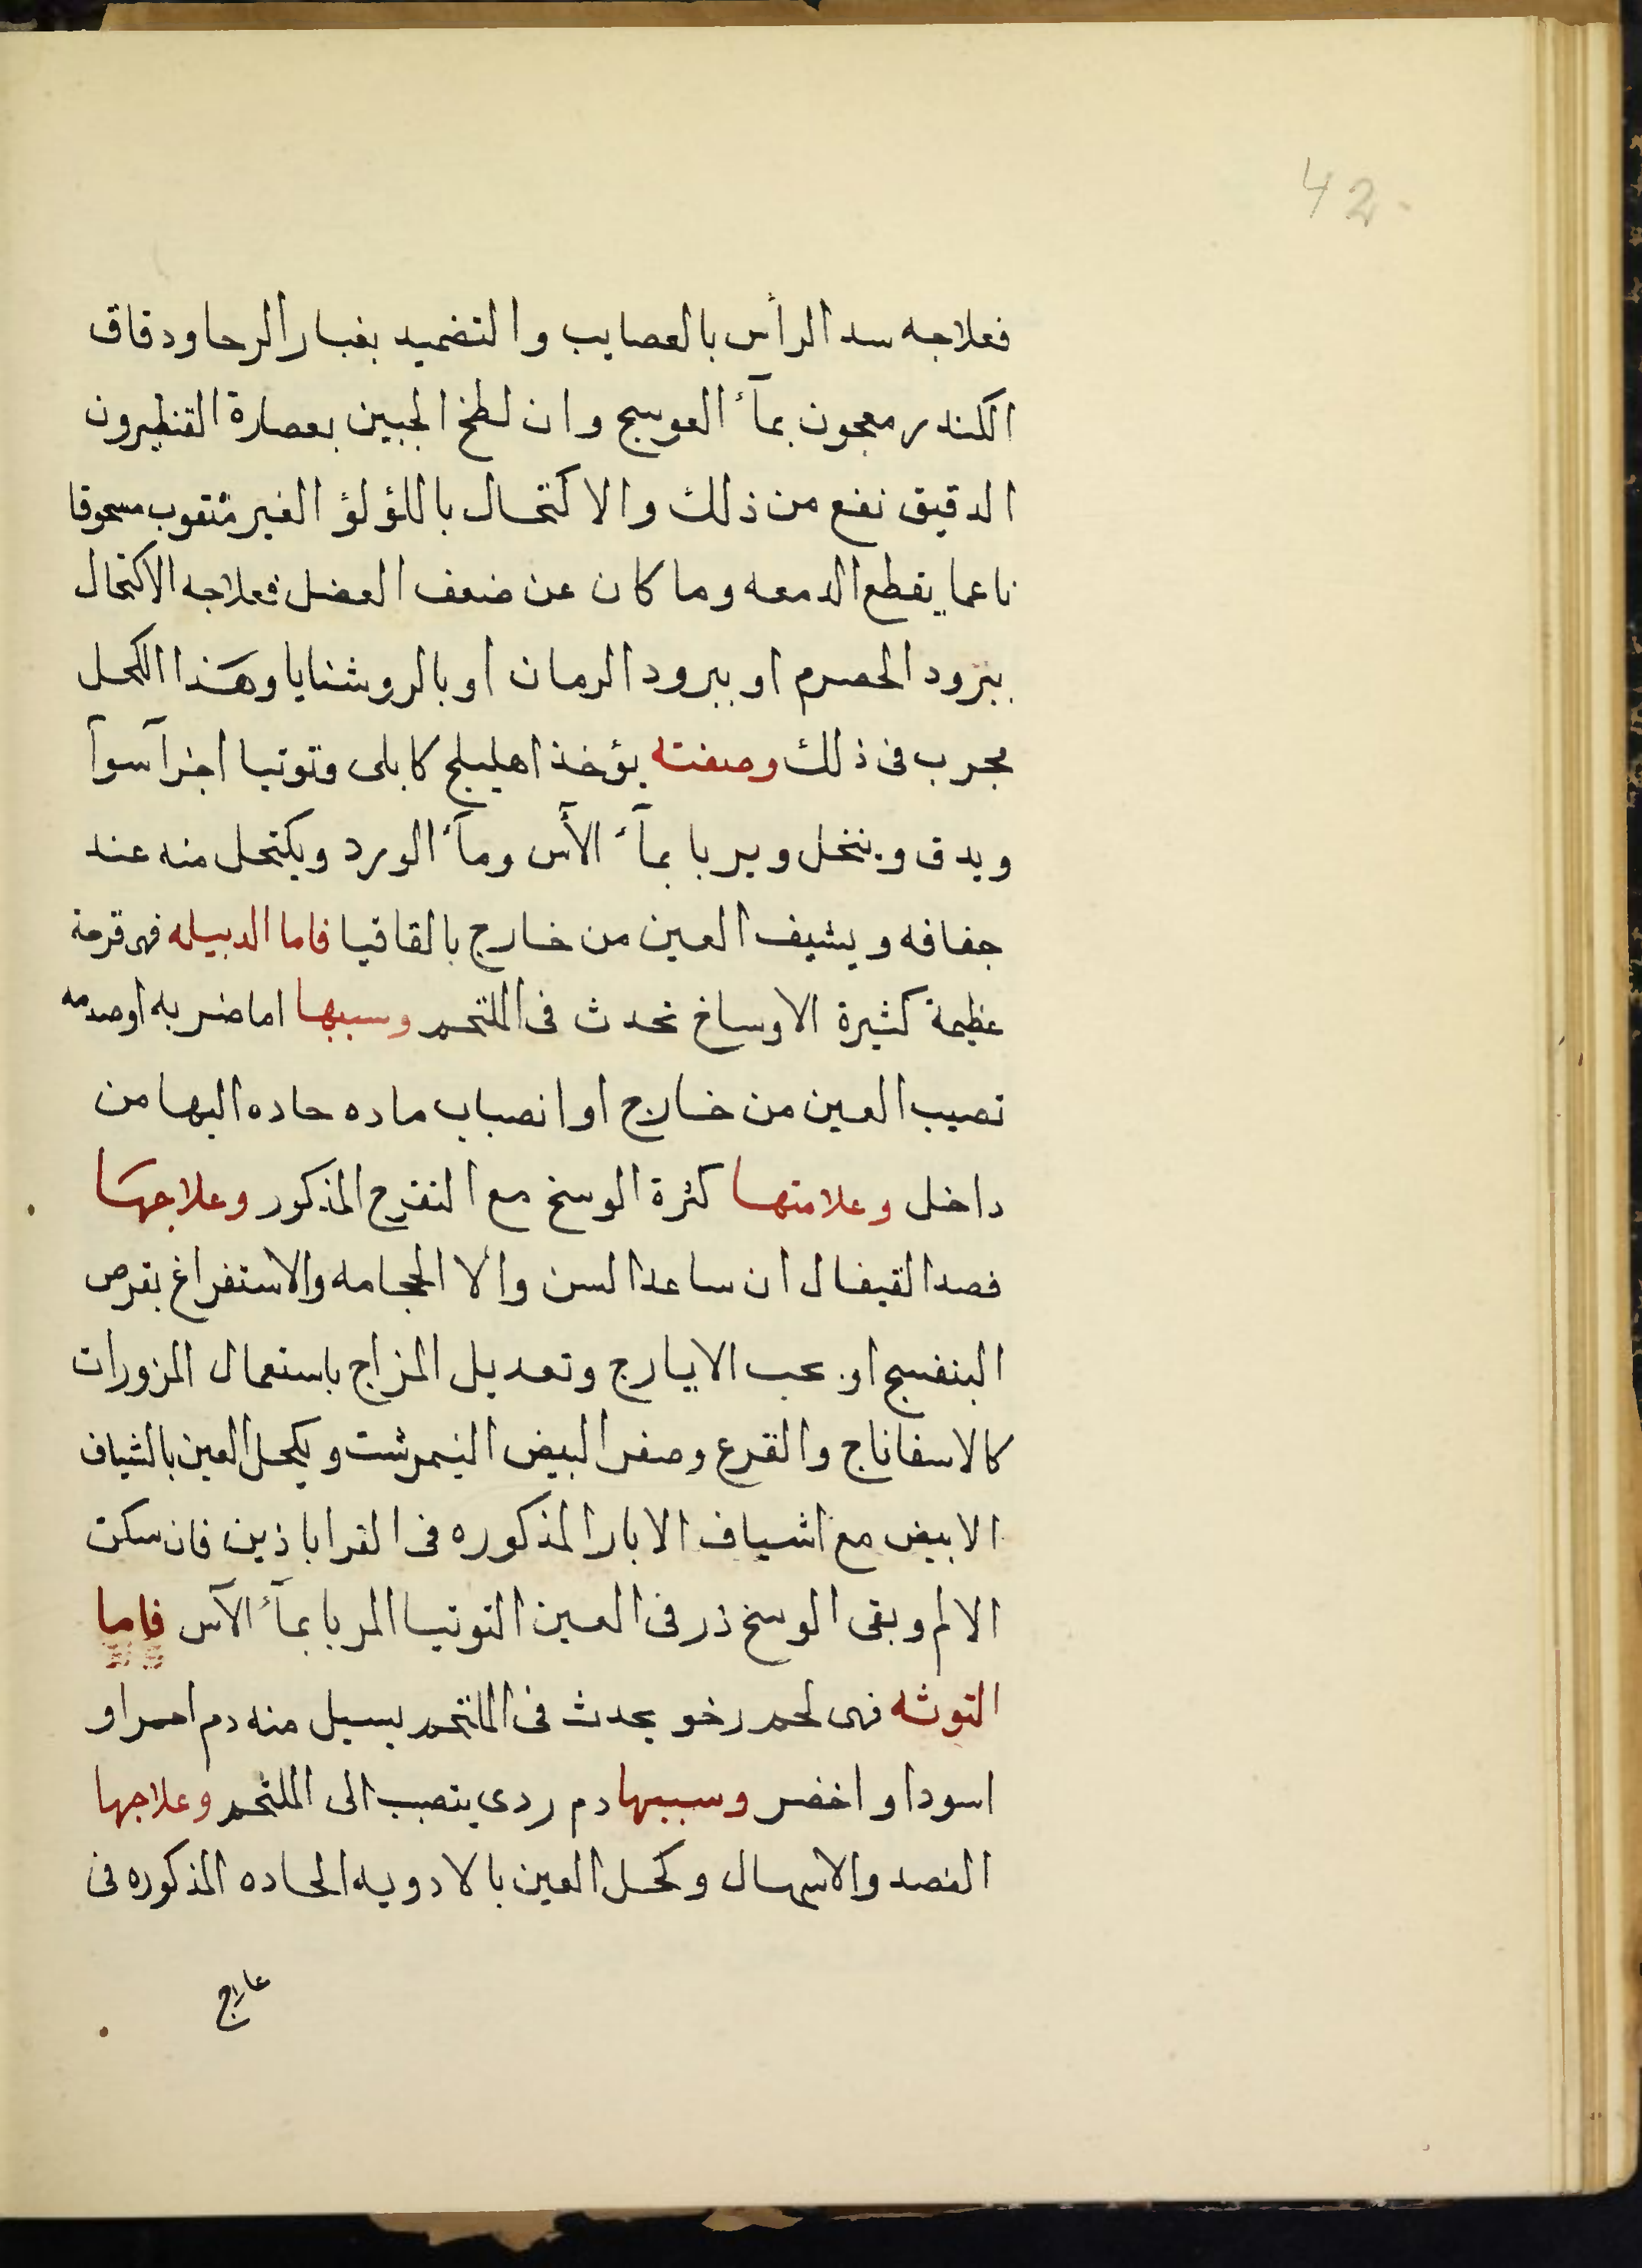 42
فعلاجه سد الرأس بالعصايب والتضميد بغبار الرحا ودقاق
الكندر معجون بمآء العوسج وان لطخ الجبين بعصارة القنطيرون
الدقيق نفع من ذلك والاكتحال باللؤلؤ الغير مثقوب مسحوقا
ناعما يقطع الدمعه وما كان عن ضعف العضل فعلاجه الاكتحال
ببرود الحصرم او ببرود الرمان او بالروشنايا وهذا الكحل
مجرب فى ذلك وصفته يؤخذ اهليلج كابلى وتوتيا اجزآ سوآ
ويدق وينخل ويربا بمآء الأس ومآء الورد ويكتحل منه عند
جفافه ويشيف العين من خارج بالقاقيا فاما الدبيله فهى قرحة
عظيمة كثيرة الاوساخ تحدث فى الملتحم وسببها اما ضربه او صدمه
تصيب العين من خارج او انصباب ماده حاده اليها من
داخل وعلامتها كثرة الوسخ مع التقرح المذكور وعلاجها
فصد القيفال ان ساعد السن والا الحجامه والاستفراغ بقرص
البنفسج او بحب الايارج وتعديل المزاج باستعمال المزورات
كالاسفاناج والقرع وصفر البيض النيمرشت ويكحل العين بالشياف
الابيض مع اشياف الابار المذكوره فى القراباذين فان سكن
الالم وبقى الوسخ ذر فى العين التوتيا المربا بمآء الآس فاما
التوثه فهى لحم رخو يحدث فى الملتحم يسيل منه دم احمر او
اسود او اخضر وسببها دم ردى ينصب الى الملتحم وعلاجها
الفصد والاسهال وكحل العين بالادويه الحاده المذكوره فى
علاج